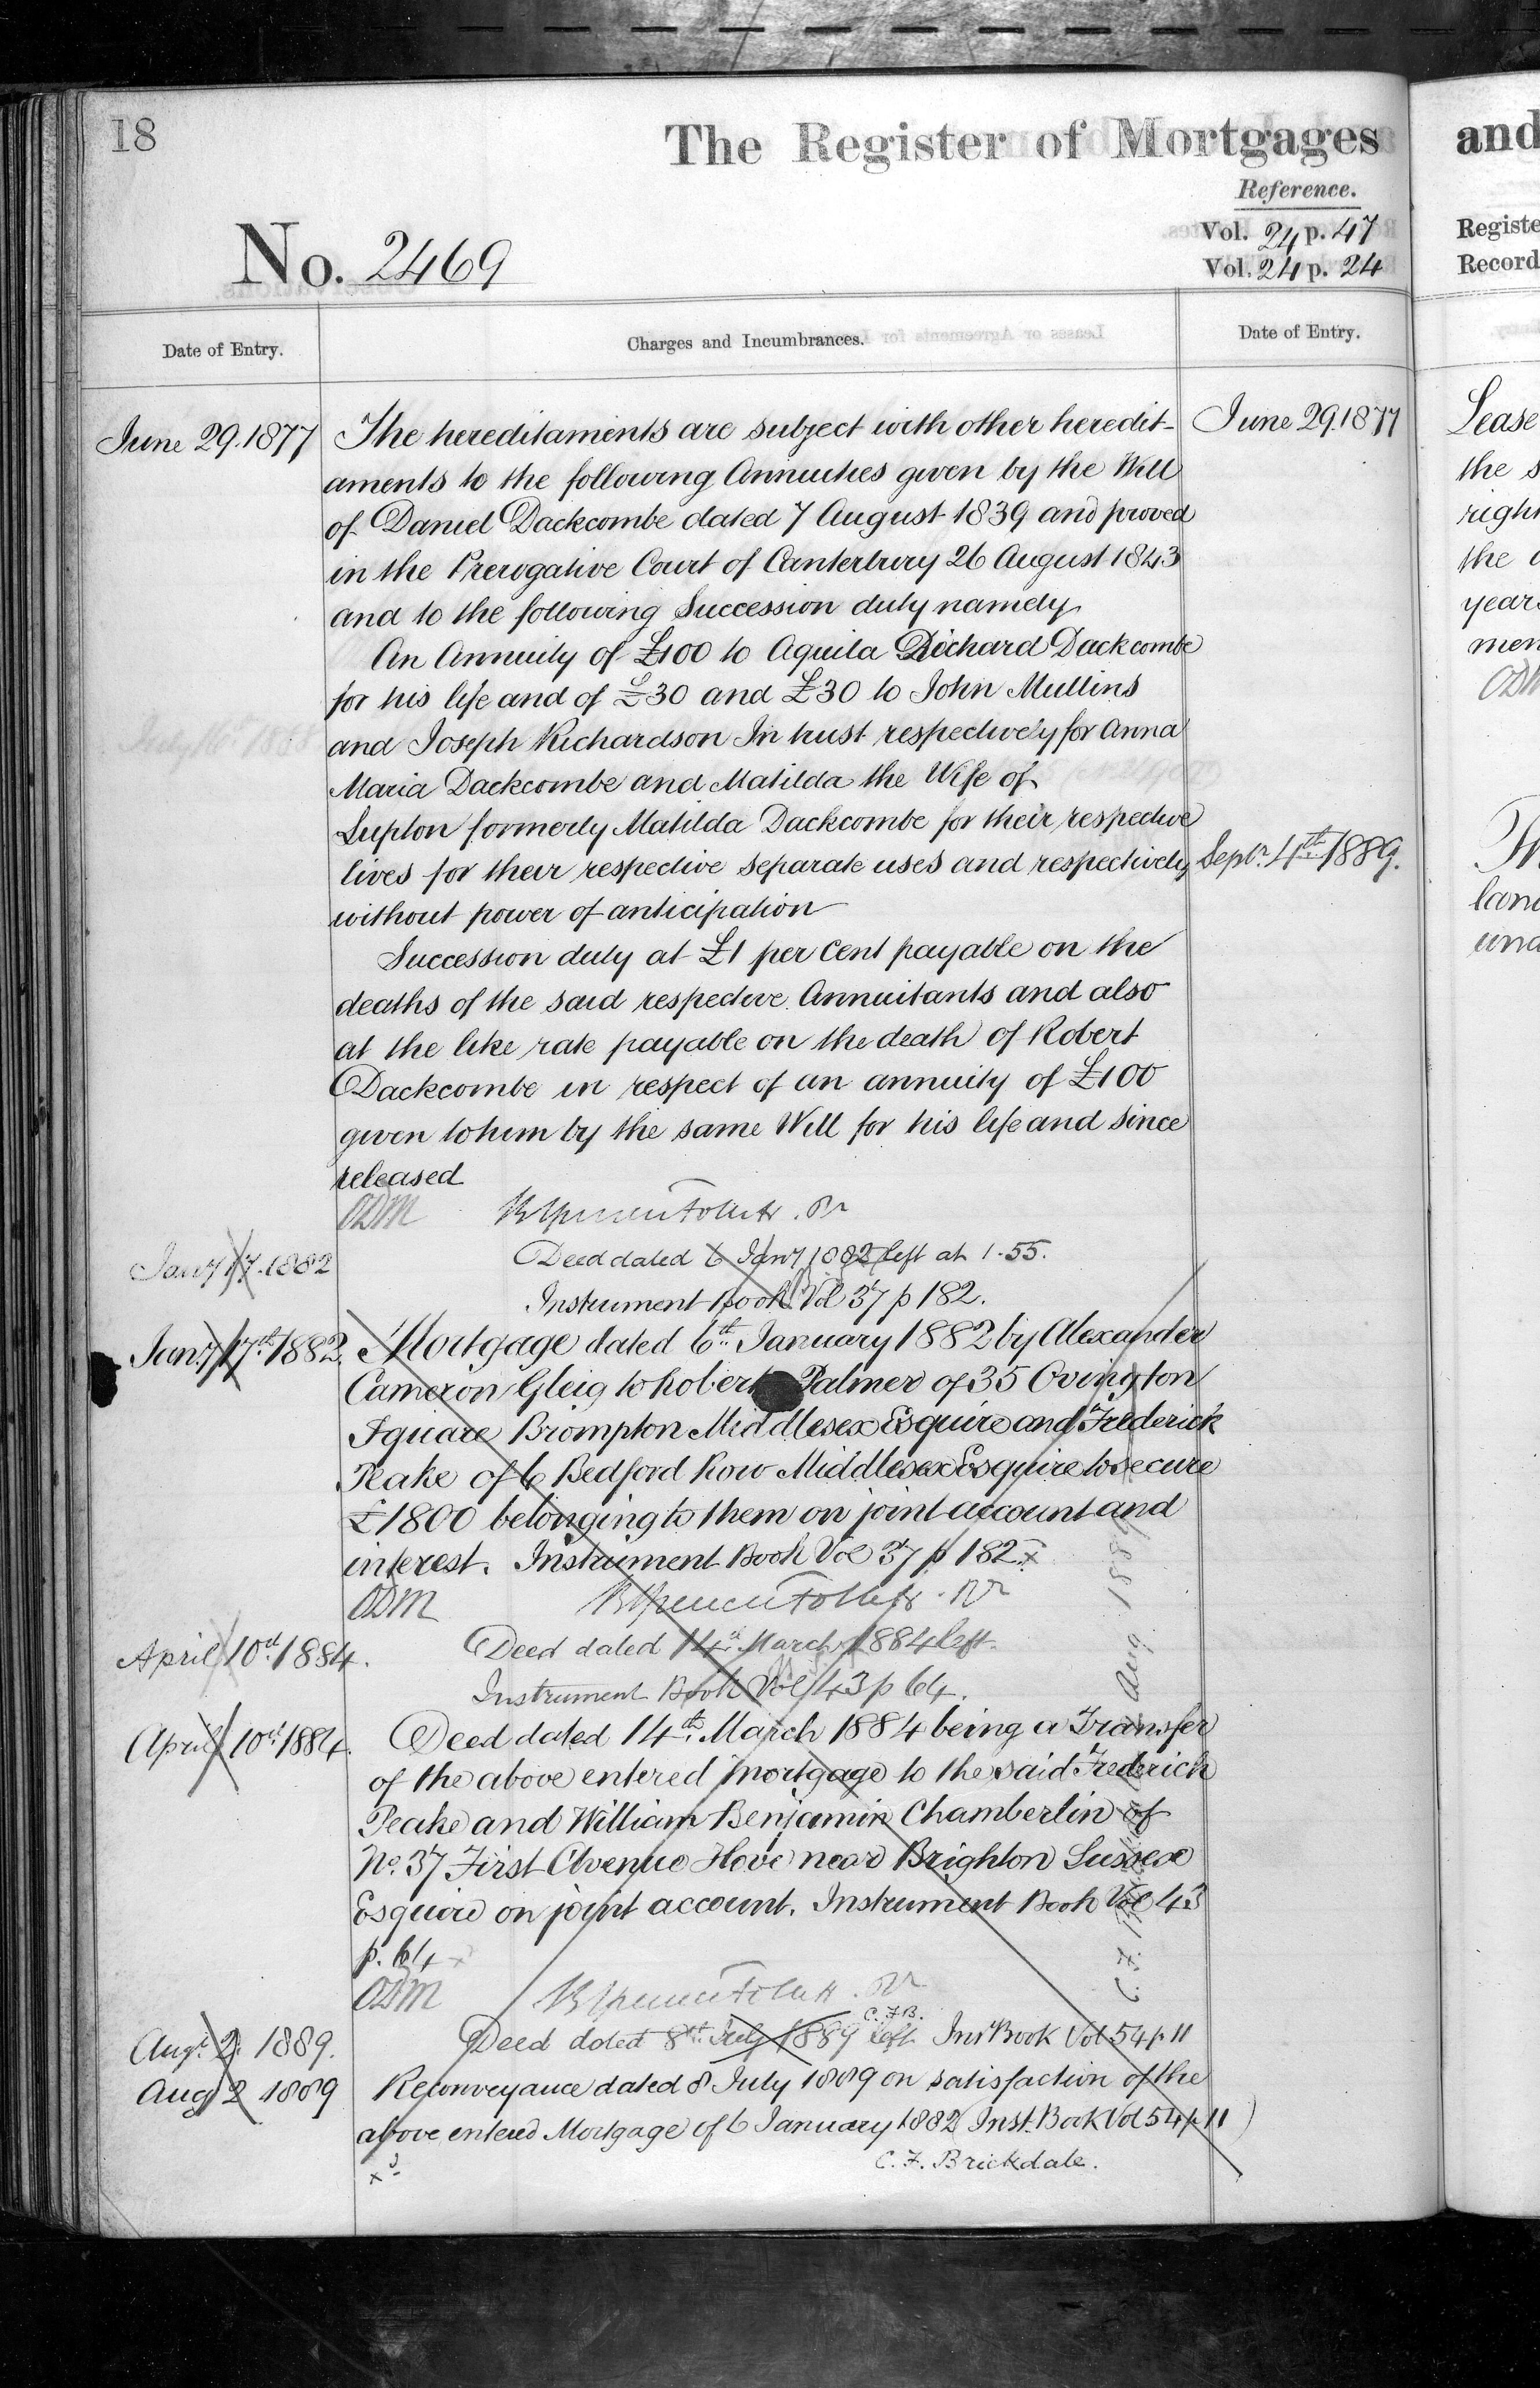 18
The Register of Mortgages
Reference.
Vol. 24 p. 47
No. 2469
Vol. 24 p. 24
Date of Entry.
Charges and Incumbrances.
Date of Entry.
June 29.1877
The hereditaments are subject with other heredit-
aments to the following Annuities given by the Will
of Daniel Dackcombe dated 7 August 1839 and proved
in the Prerogative Court of Canterbury 26 August 1843
and to the following Succession duty namely
An Annuity of £100 to Aquila Richard Dackcombe
for his life and of £30 and £30 to John Mullins
and Joseph Richardson In trust respectively for Anna
Maria Dackcombe and Matilda the Wife of
Lupton formerly Matilda Dackcombe for their respective
lives for their respective separate uses and respectively
without power of anticipation
Succession duty at £1 per Cent payable on the
deaths of the said respective Annuitants and also
at the like rate payable on the death of Robert
Dackcombe in respect of an annuity of £100
given to him by the same Will for his life and since
released
ODM
Jany 17.1882
Deed dated 6 Jany 1882 left at 1.55.
Instrument Book Vol 37 p 182.
Jany 17th 1882.
Mortgage dated 6th January 1882 by Alexander
Cameron Gleig to Robert Palmer of 35 Ovington
Square Brompton Middlesex Esquire and Frederick
Peake of 6 Bedford Row Middlesex Esquire to secure
£1800 belonging to them on joint account and
interest. Instrument Book Vol 37 p 182 x
ODM
April 10th 1884.
Deed dated 14th March 1884 left.
Instrument Book Vol 43 p 64.
April 10th 1884.
Deed dated 14th March 1884 being a Transfer
of the above entered mortgage to the said Frederick
Peake and William Benjamin Chamberlin of
No. 37 First Avenue Hove near Brighton Sussex
Esquire on joint account. Instrument Book Vol 43
p. 64
ODM
C.F.B.
Augt. 2 1889.
Deed dated 8th July 1889 left Inst Book Vol 54 p 11
Aug 2 1889
Reconveyance dated 8 July 1889 on satisfaction of the
above entered Mortgage of 6 January 1882 Inst. Book Vol 54 p 11
C. F. Brickdale.
Aug 1889
C. F.
June 29.1877
Septr. 4th 1889.
and
Registe
Record
Lease
the s
right
the
years
men
ODM
Th
land
und